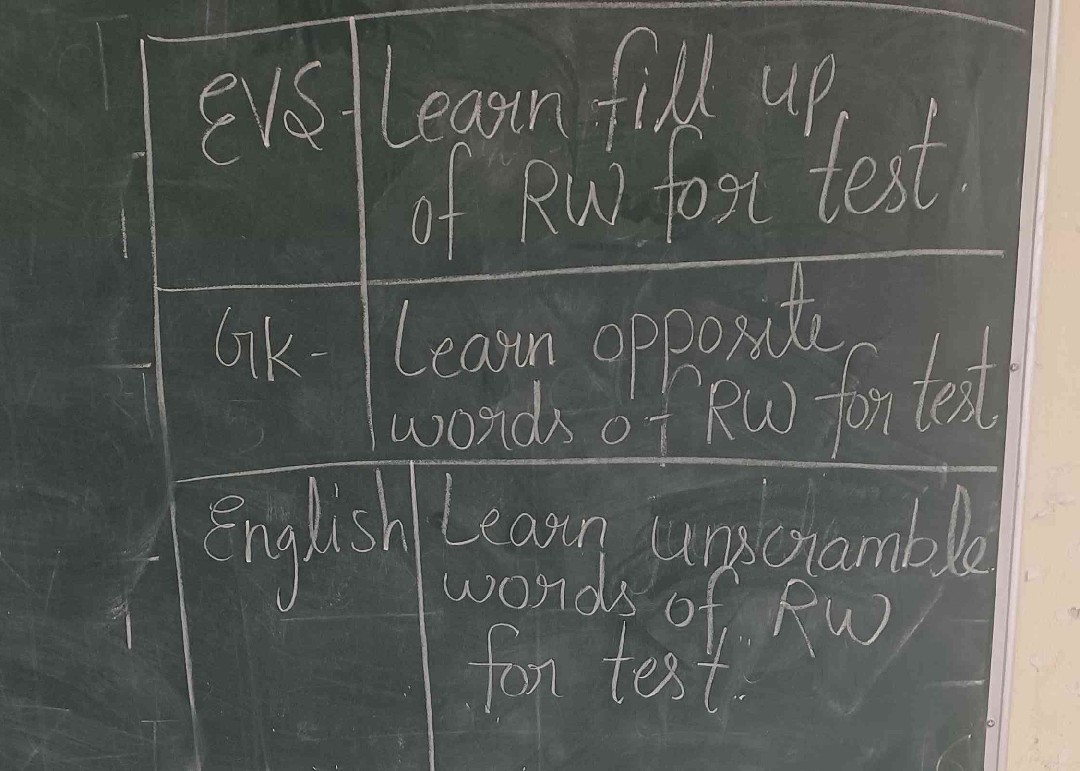 EVS- Learn fill up
of RW for test.
Gk- Learn opposite
words of RW for test.
English Learn unscramble
words of RW
for test.